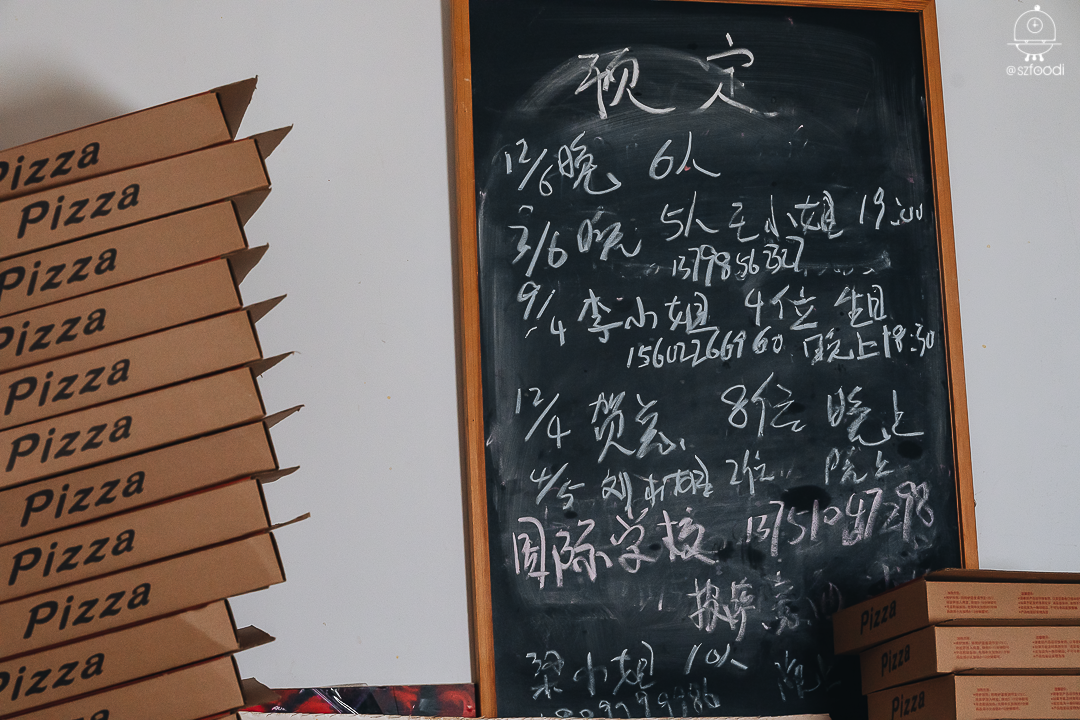 @szfoodi
Pizza
Pizza
Pizza
Pizza
Pizza
Pizza
Pizza
Pizza
Pizza
Pizza
预定
12/6晚 6人
3/6晚 5人 王小姐 19:00
1379856327
9/4 李小姐 4位
15602266960 晚上18:30
12/4 贺总 8位 晚上
4/5 刘小姐 2位 晚上
国际学校 13751047298
披萨
梁小姐 10人
Pizza
Pizza
Pizza